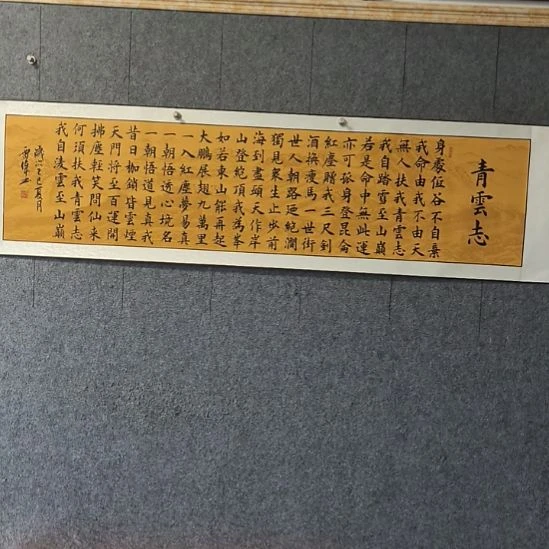 青雲志
身處低谷不自棄
我命由我不由天
無人扶我青雲志
我自踏雪至山巔
若是命中無此運
亦可孤身登昆侖
紅塵贈我三尺
酒換瘦馬一世街
世人朝路絕
獨見眾生止步前
海到盡頭天作岸
山登絕頂我為峯
如若東山能再起
大鵬展翅九萬里
一入紅塵夢易真
一朝悟透心境名
一朝悟道見真我
昔日枷鎖皆雲煙
天門將至百運開
拂塵輕笑問仙來
何須扶我青雲志
我自凌雲至山巔
歲次乙巳夏月